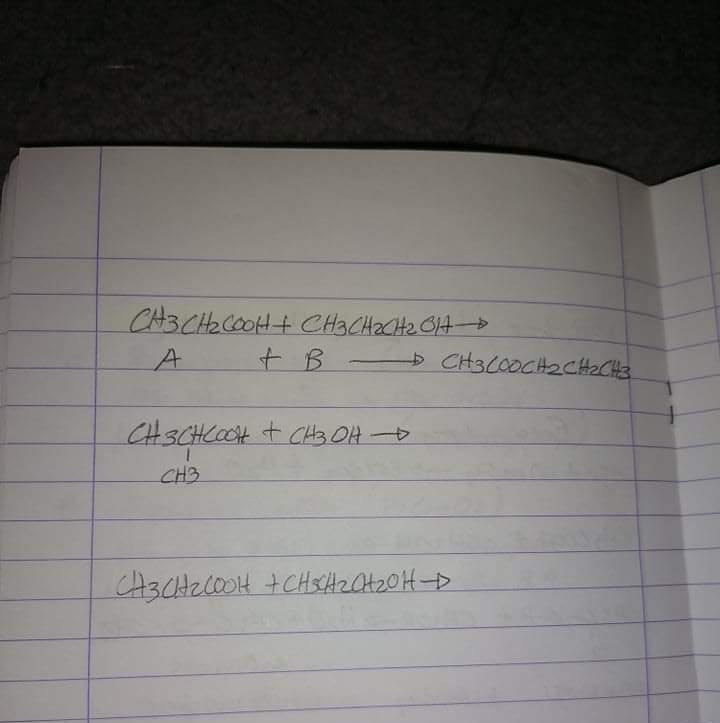 CH3CH2COOH + CH3CH2CH2OH →
A + B → CH3COOCH2CH2CH3
CH3CHCOOH + CH3OH →
CH3
CH3CH2COOH + CH3CH2CH2OH →